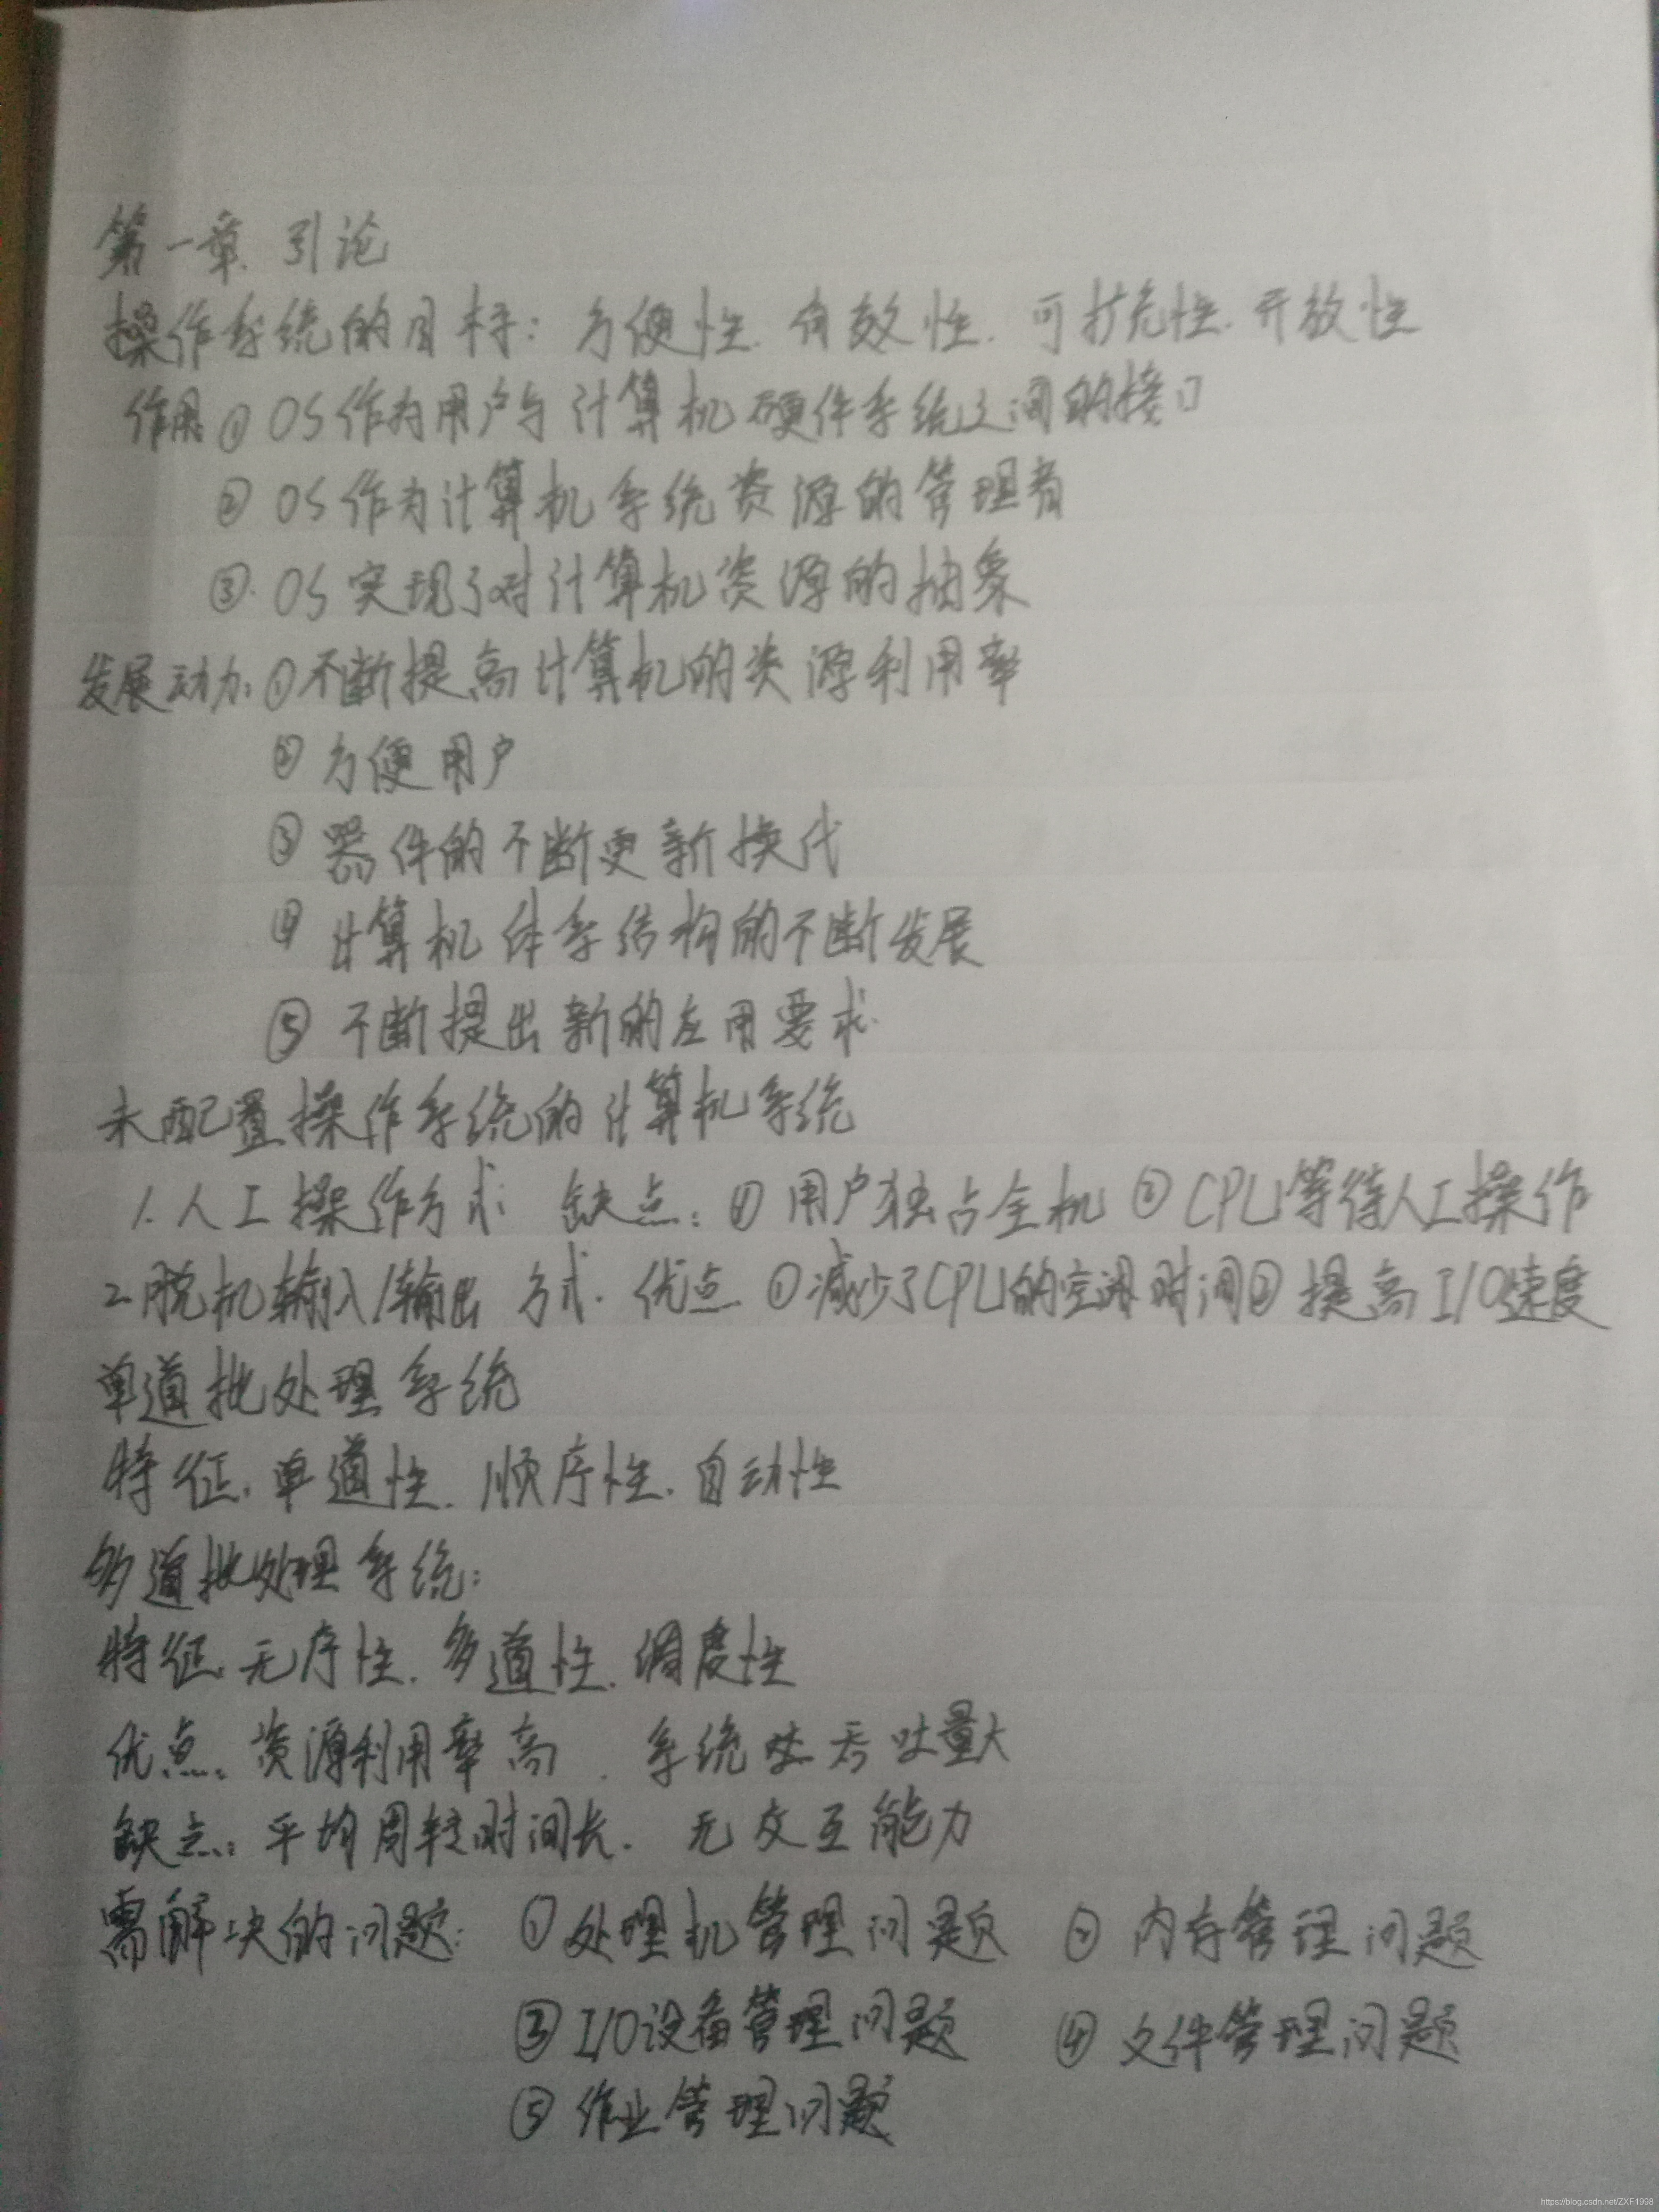 第一章 引论
操作系统的目标: 方便性. 有效性. 可扩充性. 开放性
作用: ① OS作为用户与计算机硬件系统之间的接口
② OS作为计算机系统资源的管理者
③. OS实现了对计算机资源的抽象
发展动力: ①不断提高计算机的资源利用率
② 方便用户
③ 器件的不断更新换代
④ 计算机体系结构的不断发展
⑤ 不断提出新的应用要求.
未配置操作系统的计算机系统
1. 人工操作方式 缺点: ① 用户独占全机 ② CPU等待人工操作
2. 脱机输入/输出方式. 优点 ①减少了CPU的空闲时间② 提高I/O速度
单道批处理系统
特征. 单道性. 顺序性. 自动性
多道批处理系统:
特征. 无序性. 多道性. 调度性
优点. 资源利用率高. 系统吞吐量大
缺点: 平均周转时间长. 无交互能力
需解决的问题: ①处理机管理问题 ② 内存管理问题
③ I/O设备管理问题 ④ 文件管理问题
⑤ 作业管理问题
https://blog.csdn.net/ZXF1998